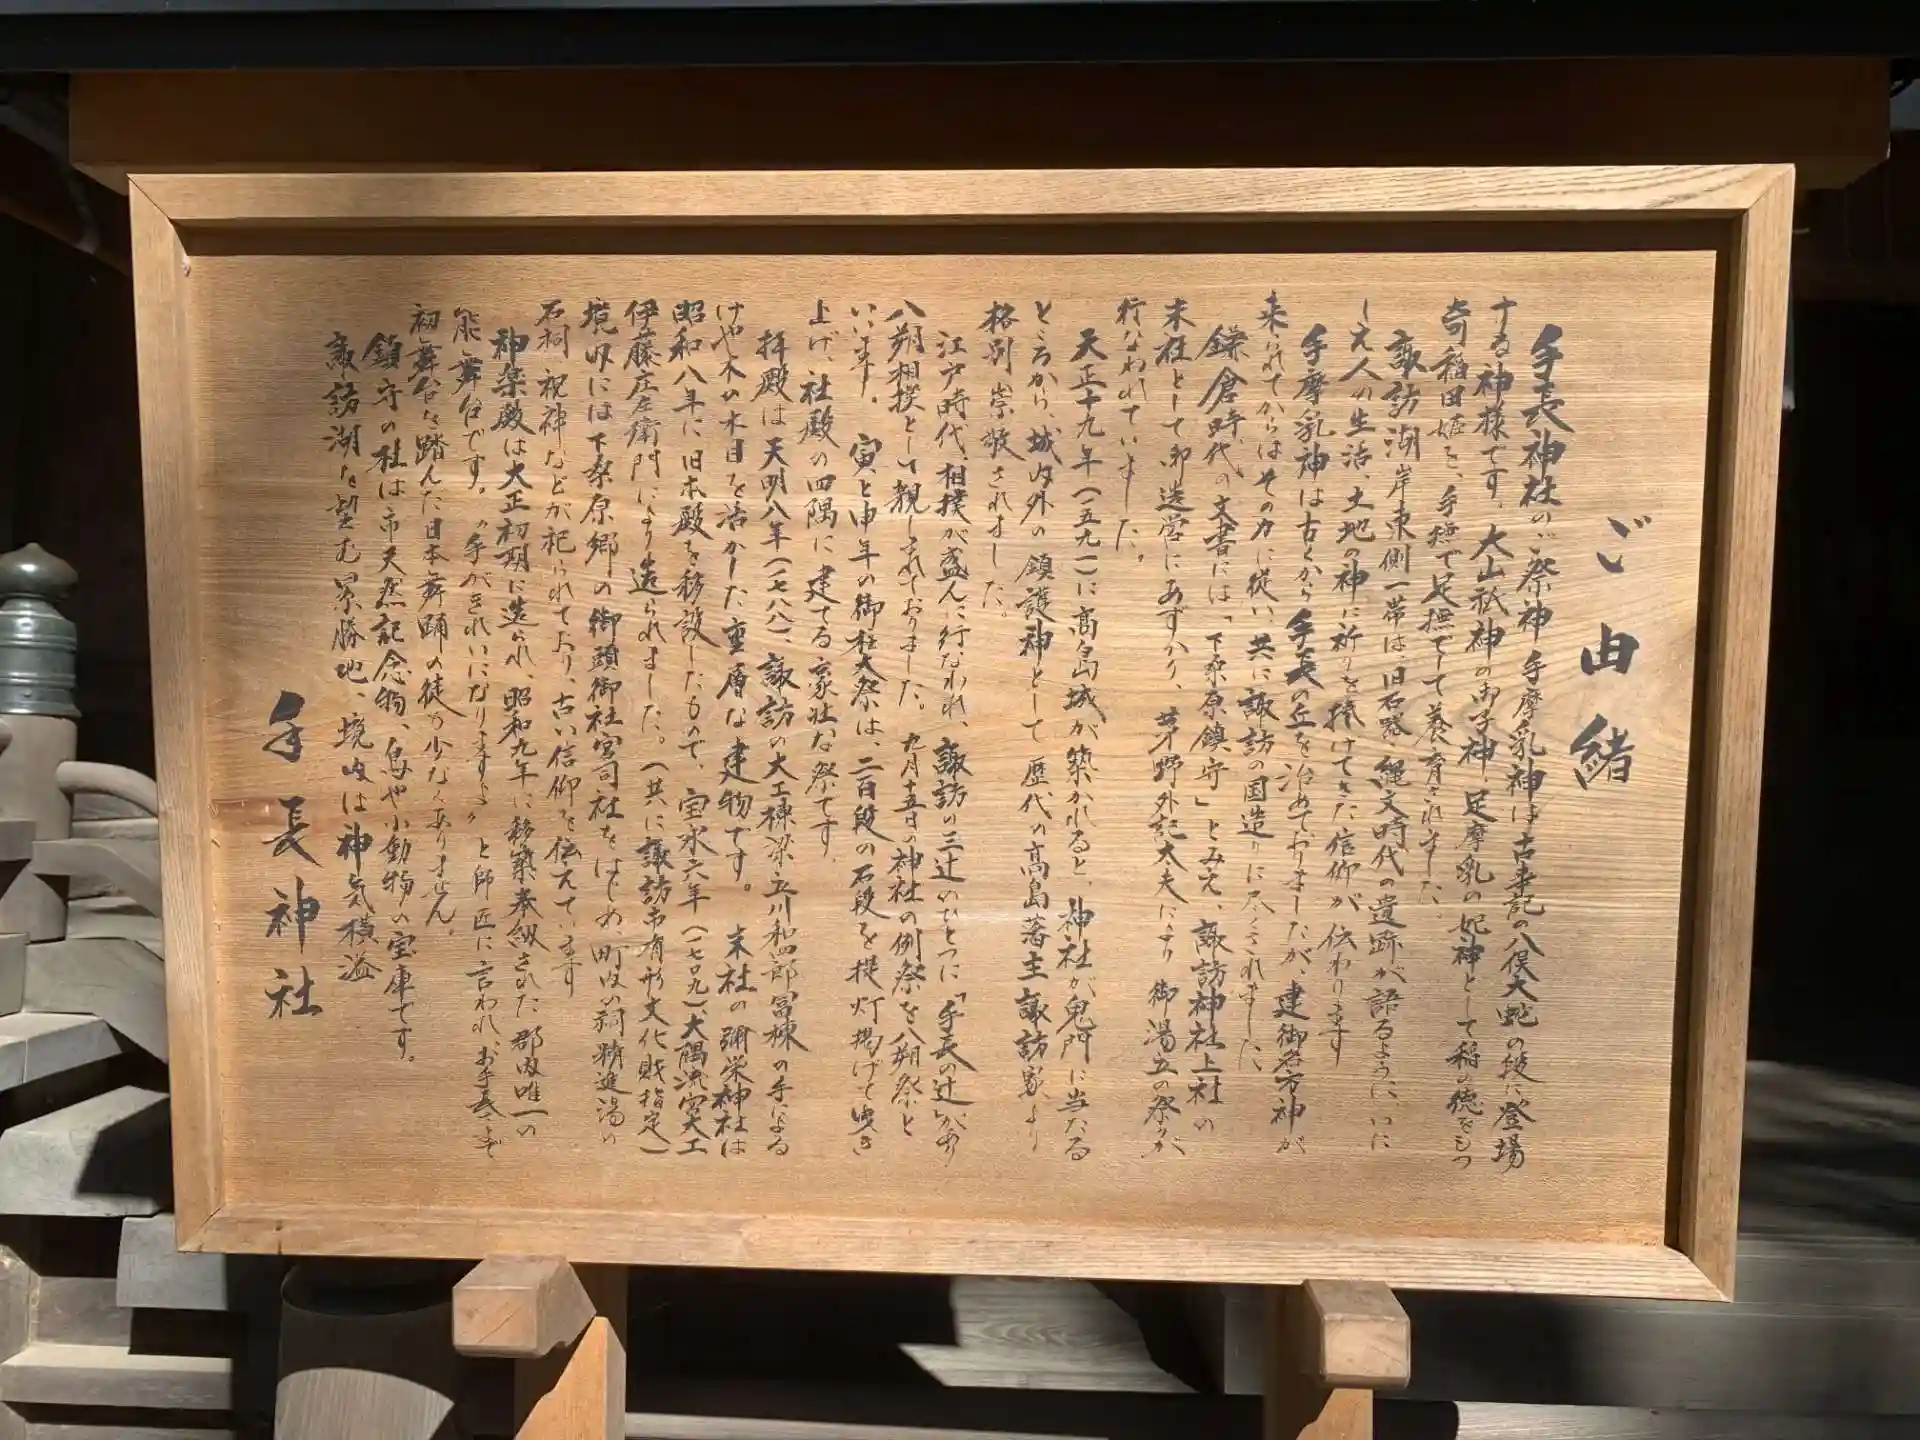 ご由緒
手長神社のご祭神 手摩乳神は古事記の八俣大蛇の段に登場
する神様です。大山祇神のお子神、足摩乳の妃神として稲の徳をもつ
奇稲田姫を、手撫で足撫でして養育されました。
諏訪湖岸東側一帯は旧石器・縄文時代の遺跡が語るように、いに
しえ人の生活、土地の神に祈りを捧げてきた信仰が伝わります
手摩乳神は古くから手長の丘を治めておりましたが、建御名方神が
来られてからはその力に従い、共に諏訪の国造りに尽くされました
鎌倉時代の文書には「下桑原鎮守」とみえ、諏訪神社上社の
末社として御造営にあずかり、茅野外記太夫により御湯立の祭りが
行なわれていました。
天正十九年(一五九一)に高島城が築かれると、神社が鬼門に当たる
ところから、城内外の鎮護神として歴代の高島藩主諏訪家より
格別崇敬されました。
江戸時代、相撲が盛んに行なわれ、諏訪の三辻のひとつに「手長の辻」があり
八朔相撲として親しまれておりました。九月十五日の神社の例祭を八朔祭と
いいます。 寅と申年の御柱大祭は、二百段の石段を提灯掲げて曳き
上げ、社殿の四隅に建てる豪壮な祭です。
拝殿は天明八年(一七八八)、諏訪の大工棟梁立川和四郎冨棟の手による
けや木の木目を活かした重層な建物です。 末社の彌栄神社は
昭和八年に旧本殿を移設したもので、宝永六年(一七〇九)、大隅流宮大工
伊藤庄左衛門により造られました。(共に諏訪市有形文化財指定)
境内には下桑原郷の御頭御社宮司社をはじめ、町内の祠、精進湯の
石祠 祝神などが祀られており、古い信仰を伝えています
神楽殿は大正初期に造られ、昭和九年に移築奉納された郡内唯一の
能舞台です。〝手がきれいになりますよ〟と師匠に言われ、お手長さまで
初舞台を踏んだ日本舞踊の徒が少なくありません。
鎮守の杜は市天然記念物、鳥や小動物の宝庫です。
諏訪湖を望む景勝地、境内は神気横溢
手長神社